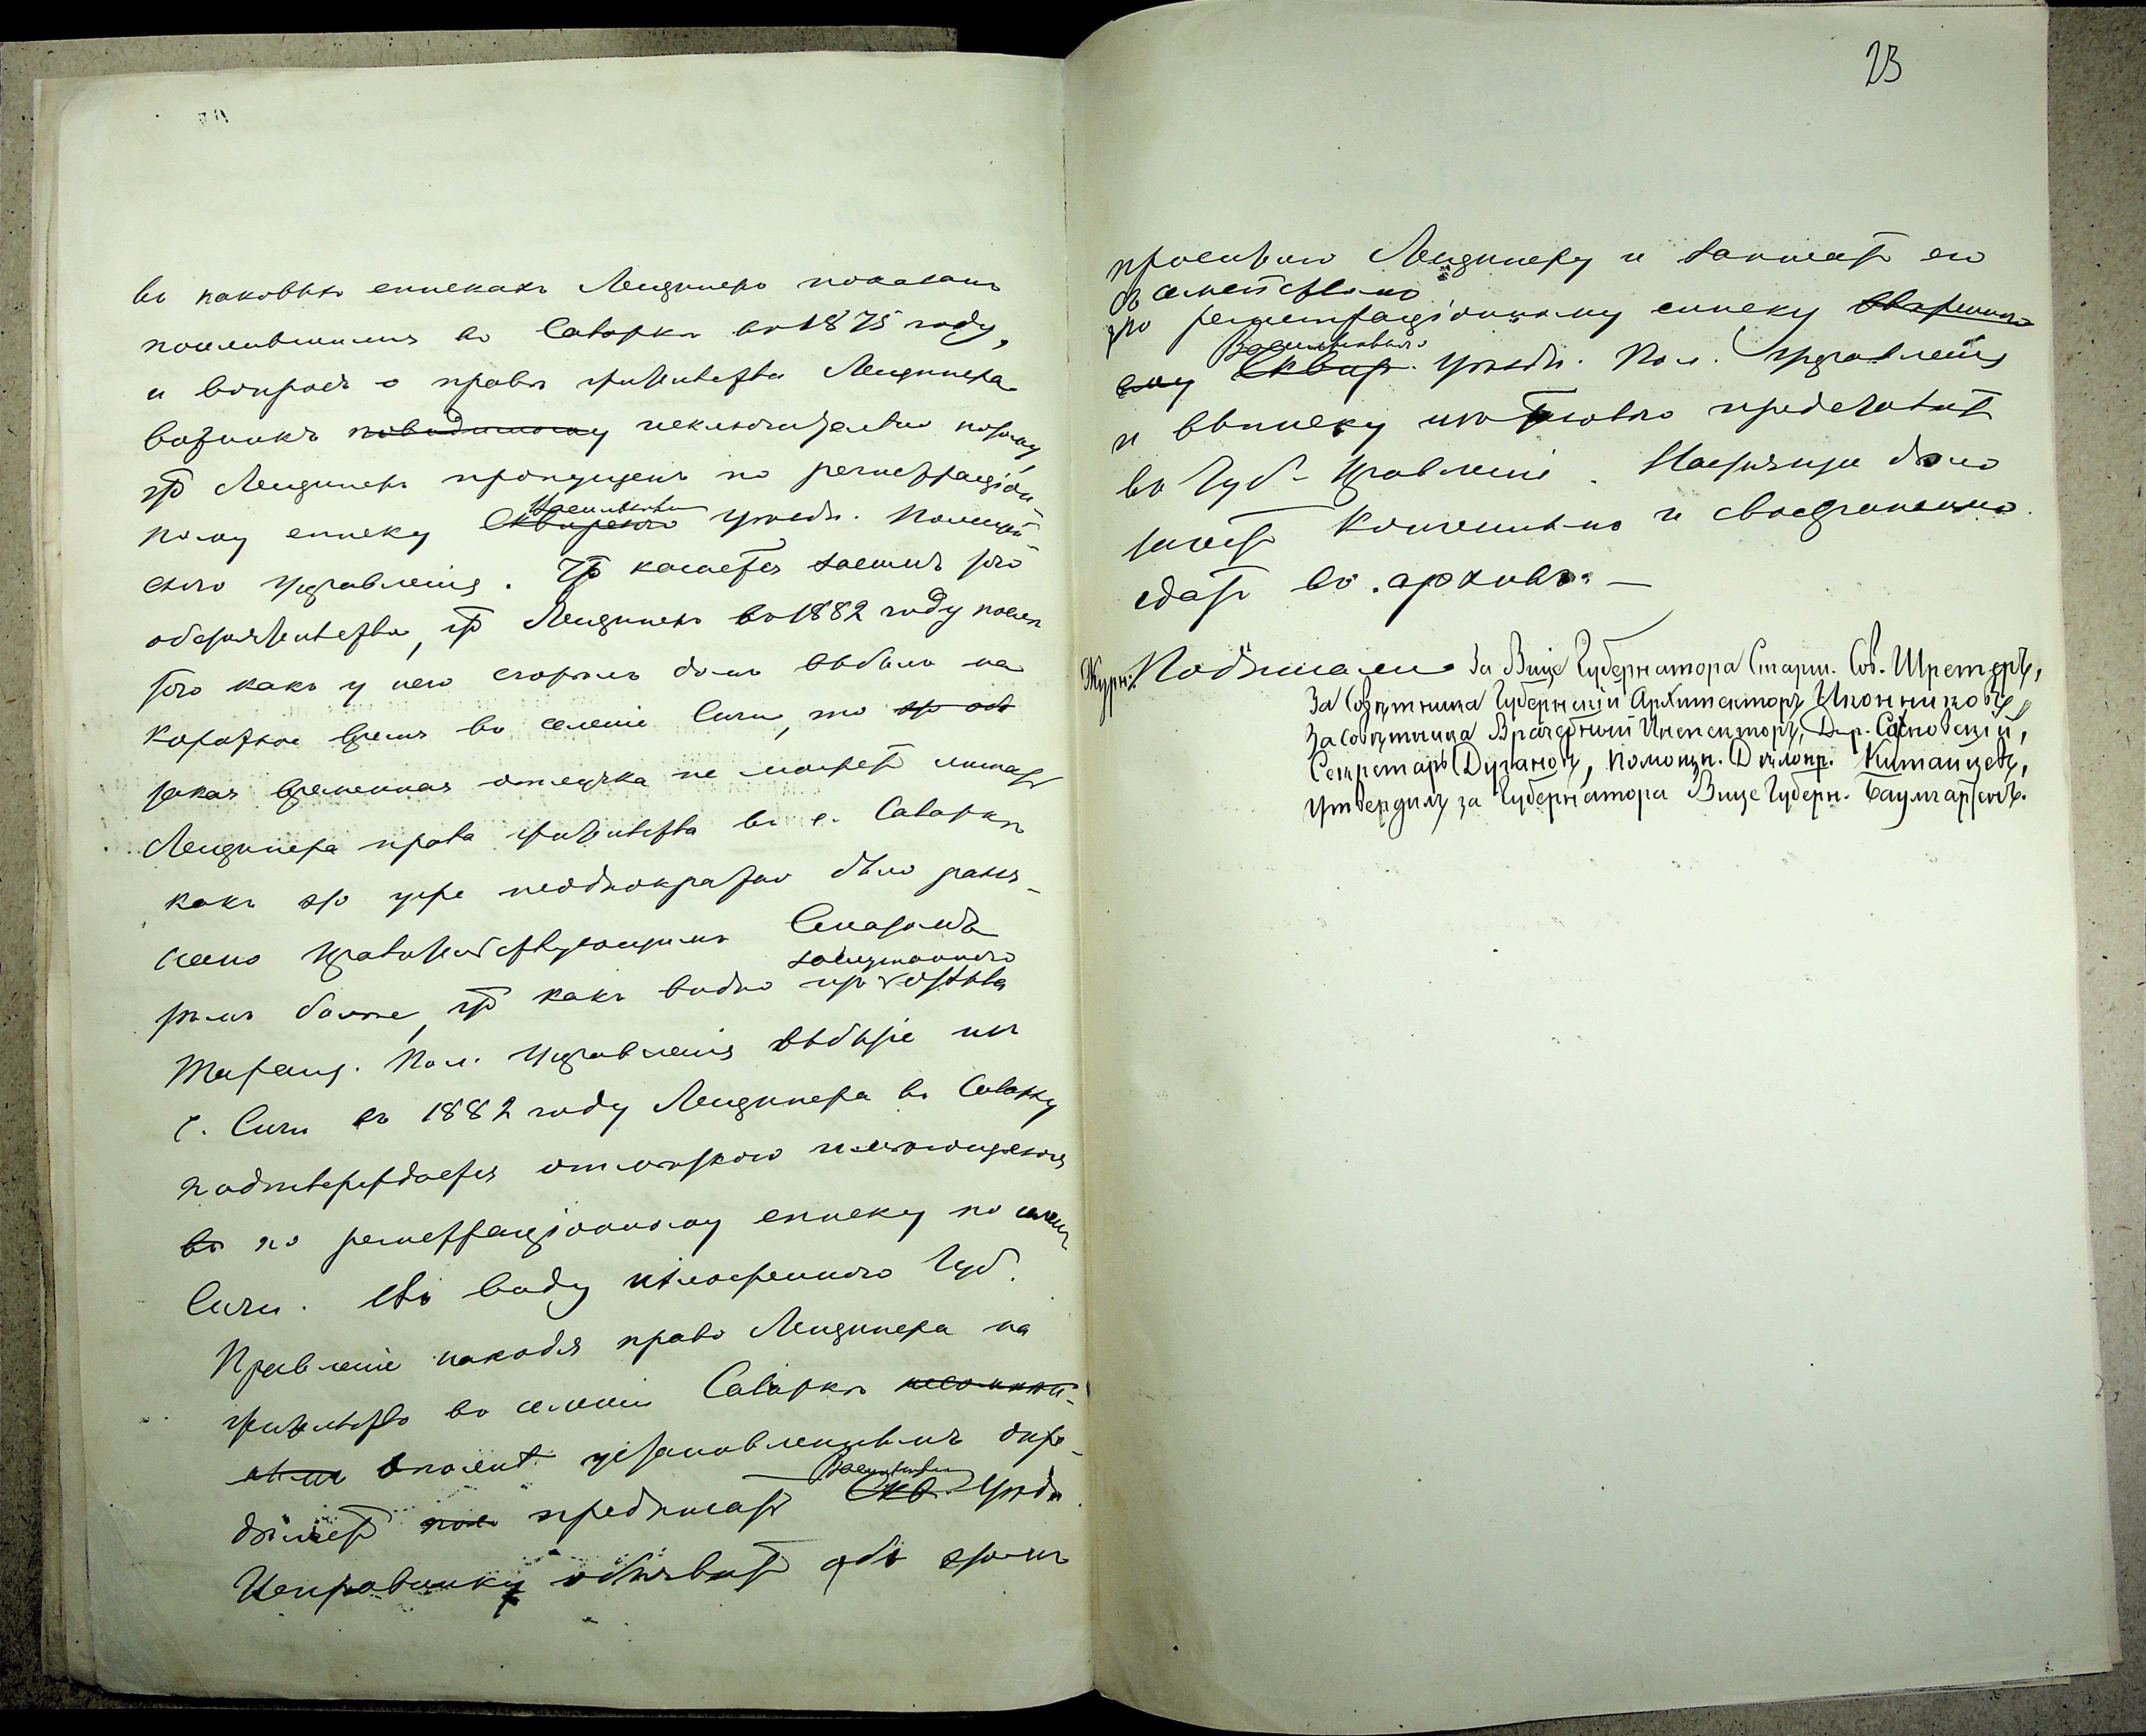 въ каковыхъ спискахъ Лендинеръ показанъ
поселившимся въ Саваркѣ въ 1875 году,
и вопросъ о правѣ жительства Лендинера
возникъ повидимому исключительно потому,
что Лендинеръ пропущенъ по регистраціон-
ному списку Сквирскаго Васильков. уѣздн. Полицей-
скаго Управленія. Что касается затѣмъ того
обстоятельства, что Лендинеръ въ 1882 году послѣ
того какъ у него сгорѣлъ домъ выбылъ на
короткое время въ селеніе Сичи, то
такая временная отлучка не можетъ лишать
Лендинера права жительства въ с. Саваркѣ
какъ это уже неоднократно было разъя-
снено Правительствующимъ Сенатомъ
тѣмъ болѣе, что какъ видно изъ отзыва
Таращ. Пол. Управленія выбытіе изъ
с. Сичи въ 1882 году Лендинера въ Саварку
подтверждается отмѣткою имѣющеюся
въ по регистраціонному списку по селен.
Сичи. Въ виду изложеннаго Губ.
Правленіе находя право Лендинера на
жительство въ селеніи Саваркѣ несомнѣн-
нымъ вполнѣ установленнымъ опре-
дѣляетъ предписать Скв. Васильков. Уѣздн.
Исправнику объявить объ этомъ
23
просителю Лендинеру и записать его
съ семействомъ
по регистраціонному списку
Сквир. Васильковскаго уѣздн. Пол. Управленія
и выписку изъ таковаго представить
въ Губ. Правленіе. Настоящее дѣло
считать конченнымъ и своевременно
сдать въ архивъ. —
Журн. Подписали За Вице Губернатора Старш. Сов. Шретеръ,
За Совѣтника Губернскій Архитекторъ Иконниковъ,
За совѣтника Врачебный Инспекторъ, Д-р.
Секретарь, Помощн. Дѣлопр. Китайцевъ,
Утвердилъ за Губернатора Вице Губерн. Баумгартенъ.